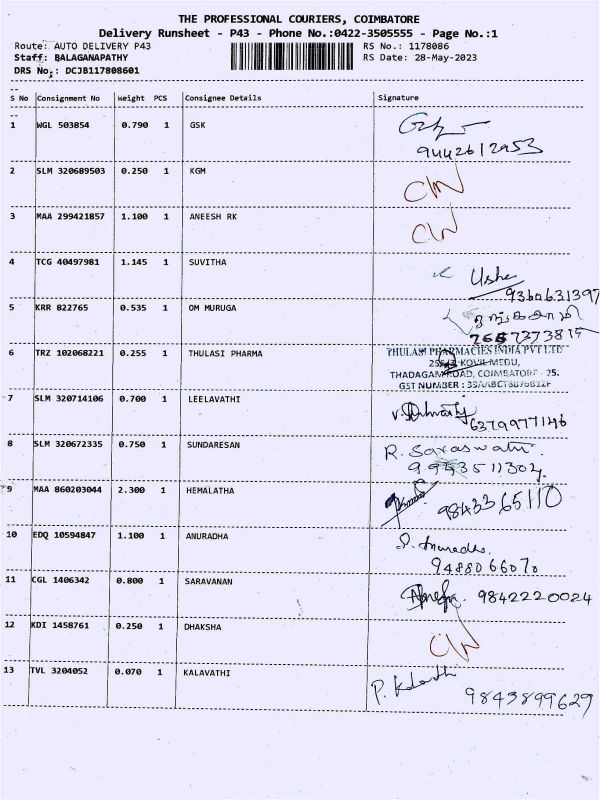 THE PROFESSIONAL COURIERS, COIMBATORE
Delivery Runsheet - P43 - Phone No.:0422-3505555 - Page No.:1
Route: AUTO DELIVERY P43 RS No.: 1178086
Staff: BALAGANAPATHY RS Date: 28-May-2023
DRS No.: DCJB117808601
S No Consignment No Weight PCS Consignee Details Signature
1 WGL 503854 0.790 1 GSK
9442612953
2 SLM 320689503 0.250 1 KGM C/N
3 MAA 299421857 1.100 1 ANEESH RK C/N
4 TCG 40497981 1.145 1 SUVITHA Usha
9360631397
5 KRR 822765 0.535 1 OM MURUGA
6 TRZ 102068221 0.255 1 THULASI PHARMA THULASI PHARMACIES INDIA PVT LTD
KOVIL MEDU,
THADAGAM ROAD, COIMBATORE - 25.
GST NUMBER :
7 SLM 320714106 0.700 1 LEELAVATHI
8 SLM 320672335 0.750 1 SUNDARESAN R. Saraswathi.
9 MAA 860203044 2.300 1 HEMALATHA 9843365110
10 EDQ 10594847 1.100 1 ANURADHA S. Anuradha,
9488066070
11 CGL 1406342 0.800 1 SARAVANAN 9842220024
12 KDI 1458761 0.250 1 DHAKSHA C/N
13 TVL 3204052 0.070 1 KALAVATHI P. Kalavathi
9843899629